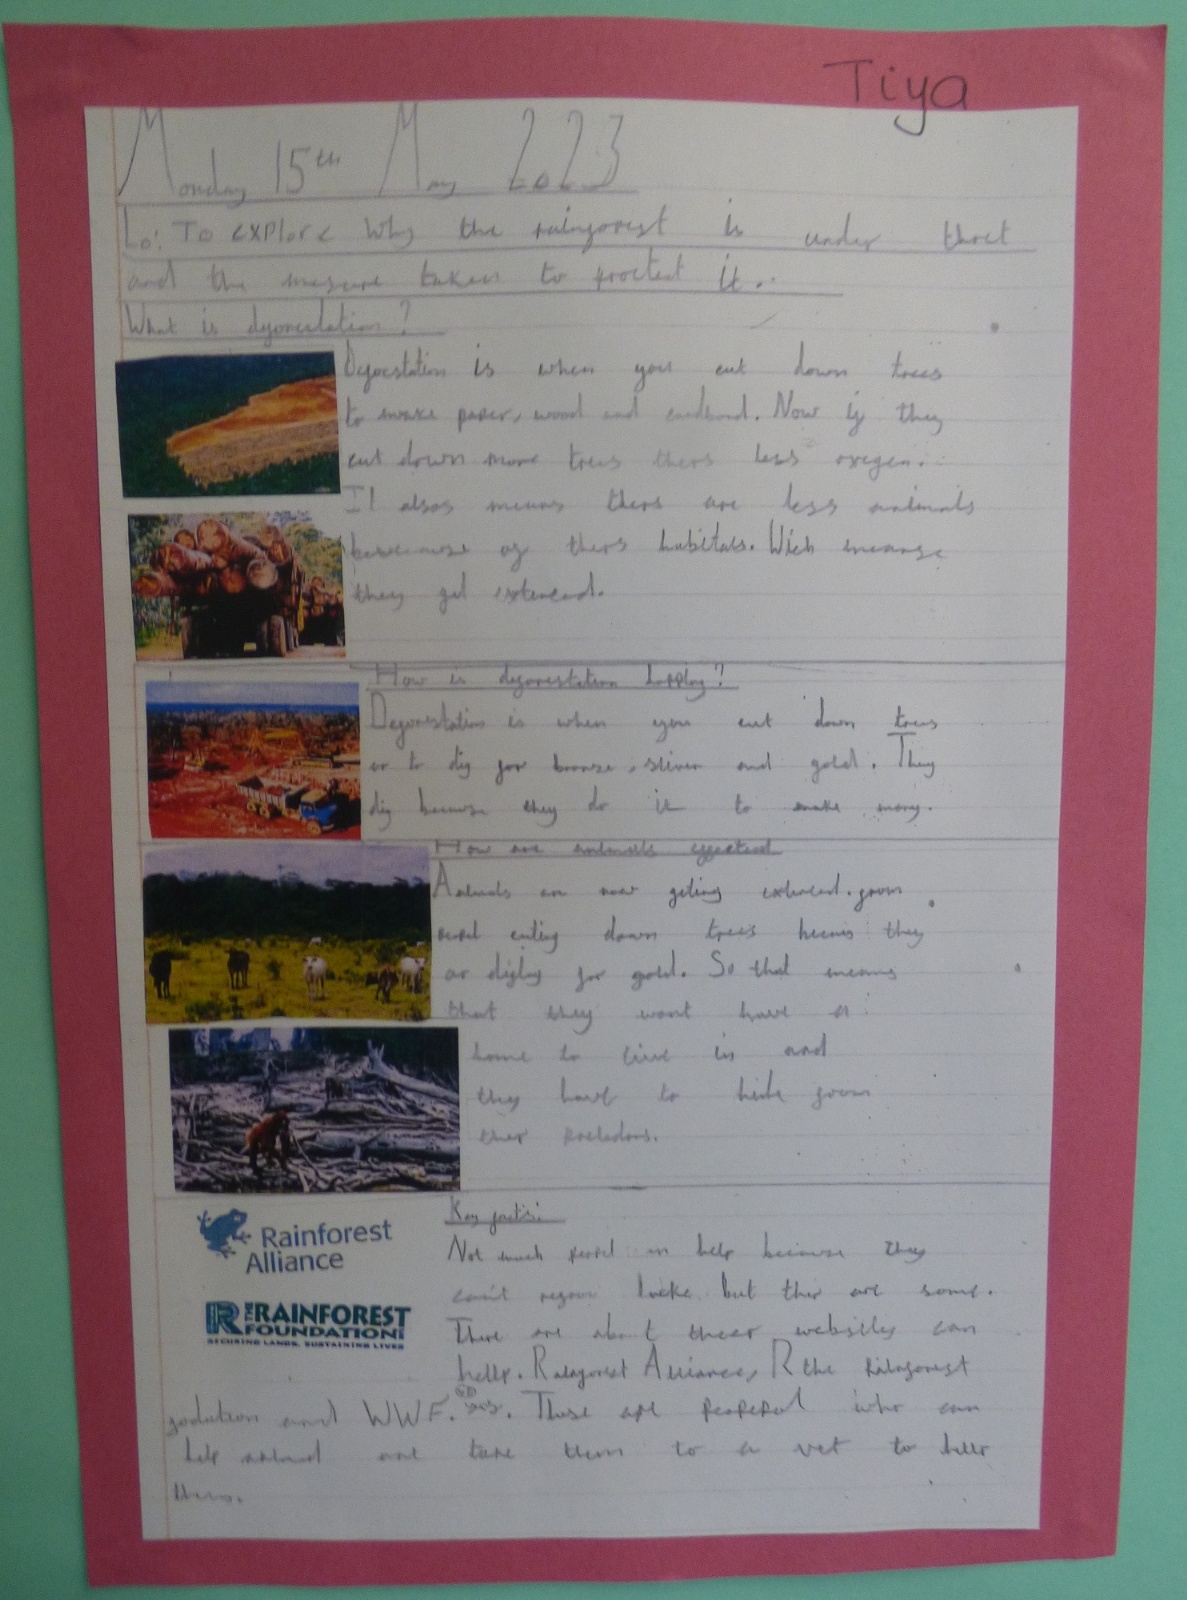 Tiya
Monday 15th May 2023
Lo: To explore Why the rainforest is under thret
and the mesure taken to proctect it..
What is deforestation?
Deforestation is when you cut down trees
to make paper, wood and cardbord. Now if they
cut down more trees thers less oxegen.
It alsos means thers are less animals
because of thers habitats. Wich means
they get extencend.
How is deforestation happing?
Deforestation is when you cut down trees
or to dig for bronze, sliver and gold. They
dig because they do it to make mony.
How are animalls effected
Animals are now geting extencend. from
cuting down trees they
ar for gold. So that means
that they wont have a
home to live in and
they have to hide from
ther
Rainforest
Alliance
Key facts:
Not much help because they
can't but ther are some.
THE RAINFOREST
FOUNDATION
SECURING LANDS, SUSTAINING LIVES
There are about websites can
help. Rainforest Alliance, R the Rainforest
and WWF. These are who can
help animal and take them to a vet to help
them.